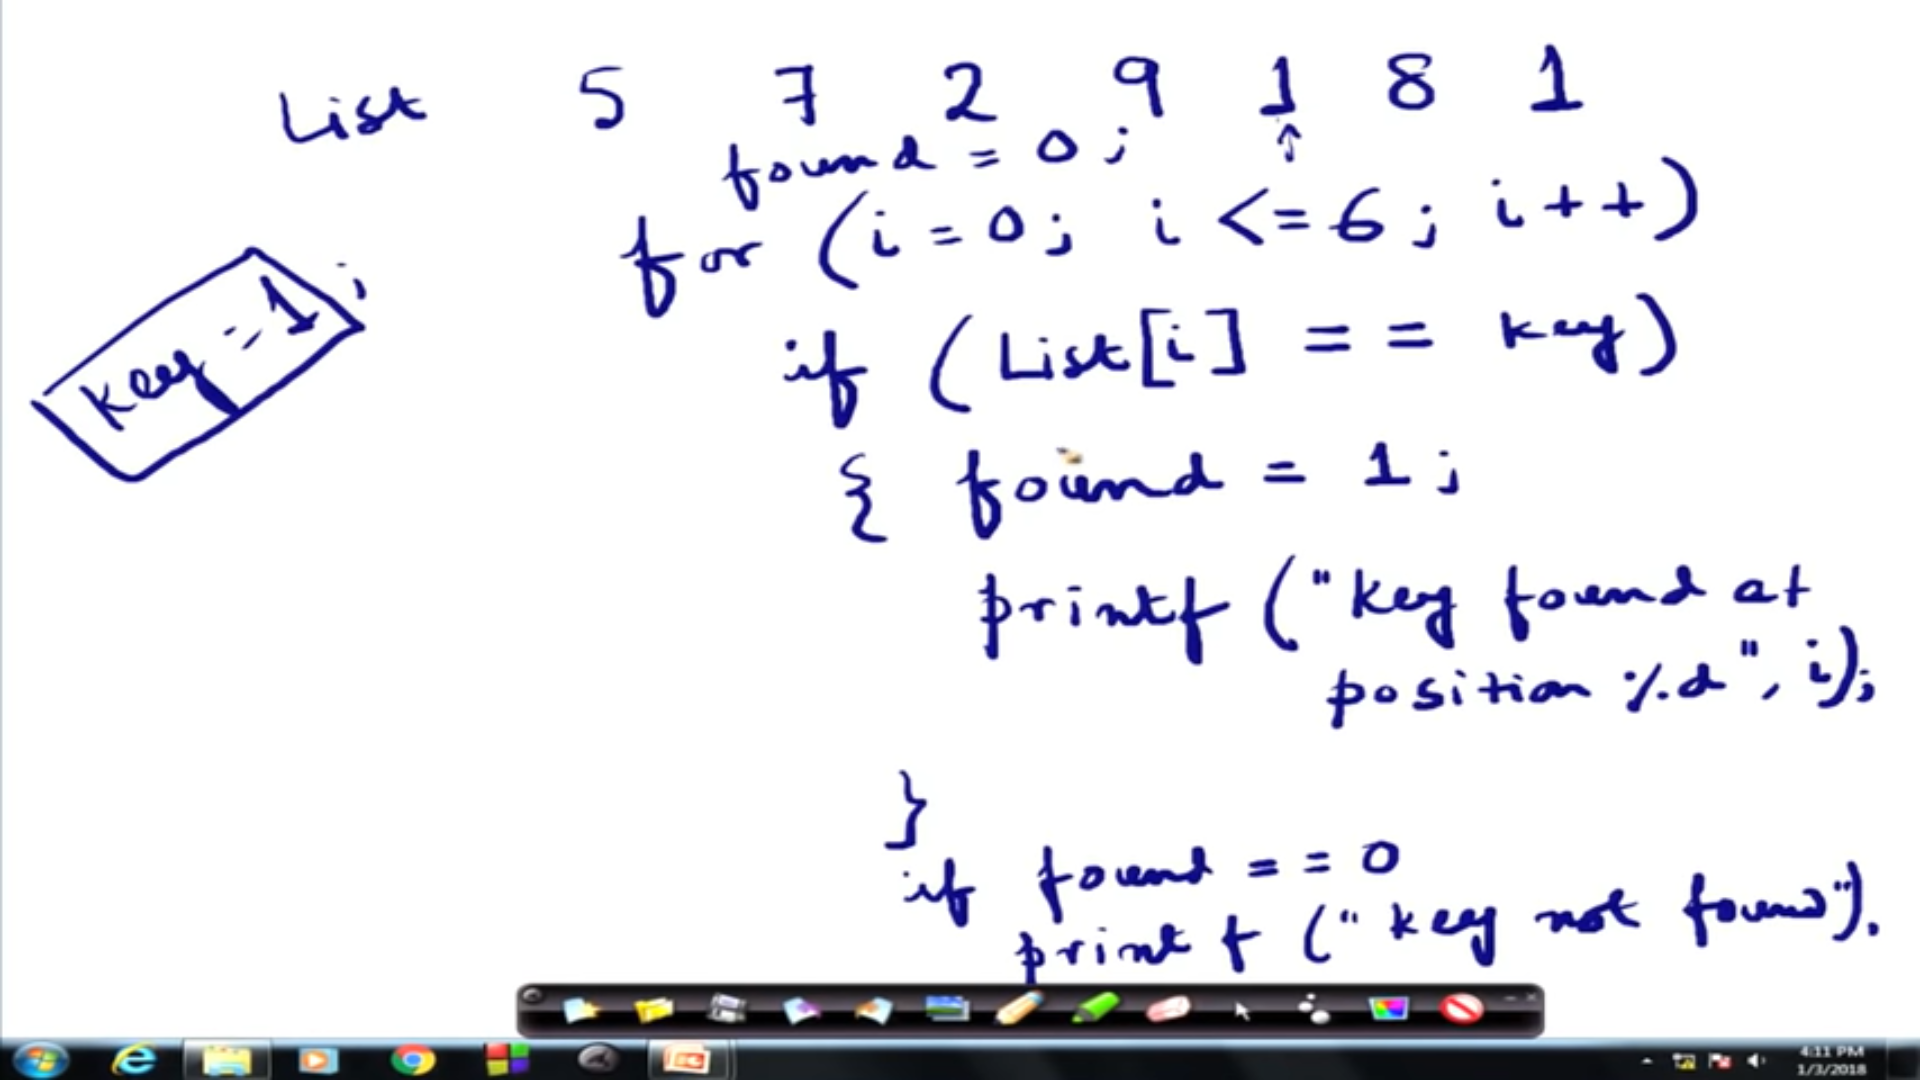 List 5 7 2 9 1 8 1
found = 0;
for (i = 0; i <= 6; i++)
key = 1;
if (List[i] == key)
{ found = 1;
printf ("key found at
position %d", i);
}
if found == 0
printf ("key not found").
4:11 PM
1/3/2018